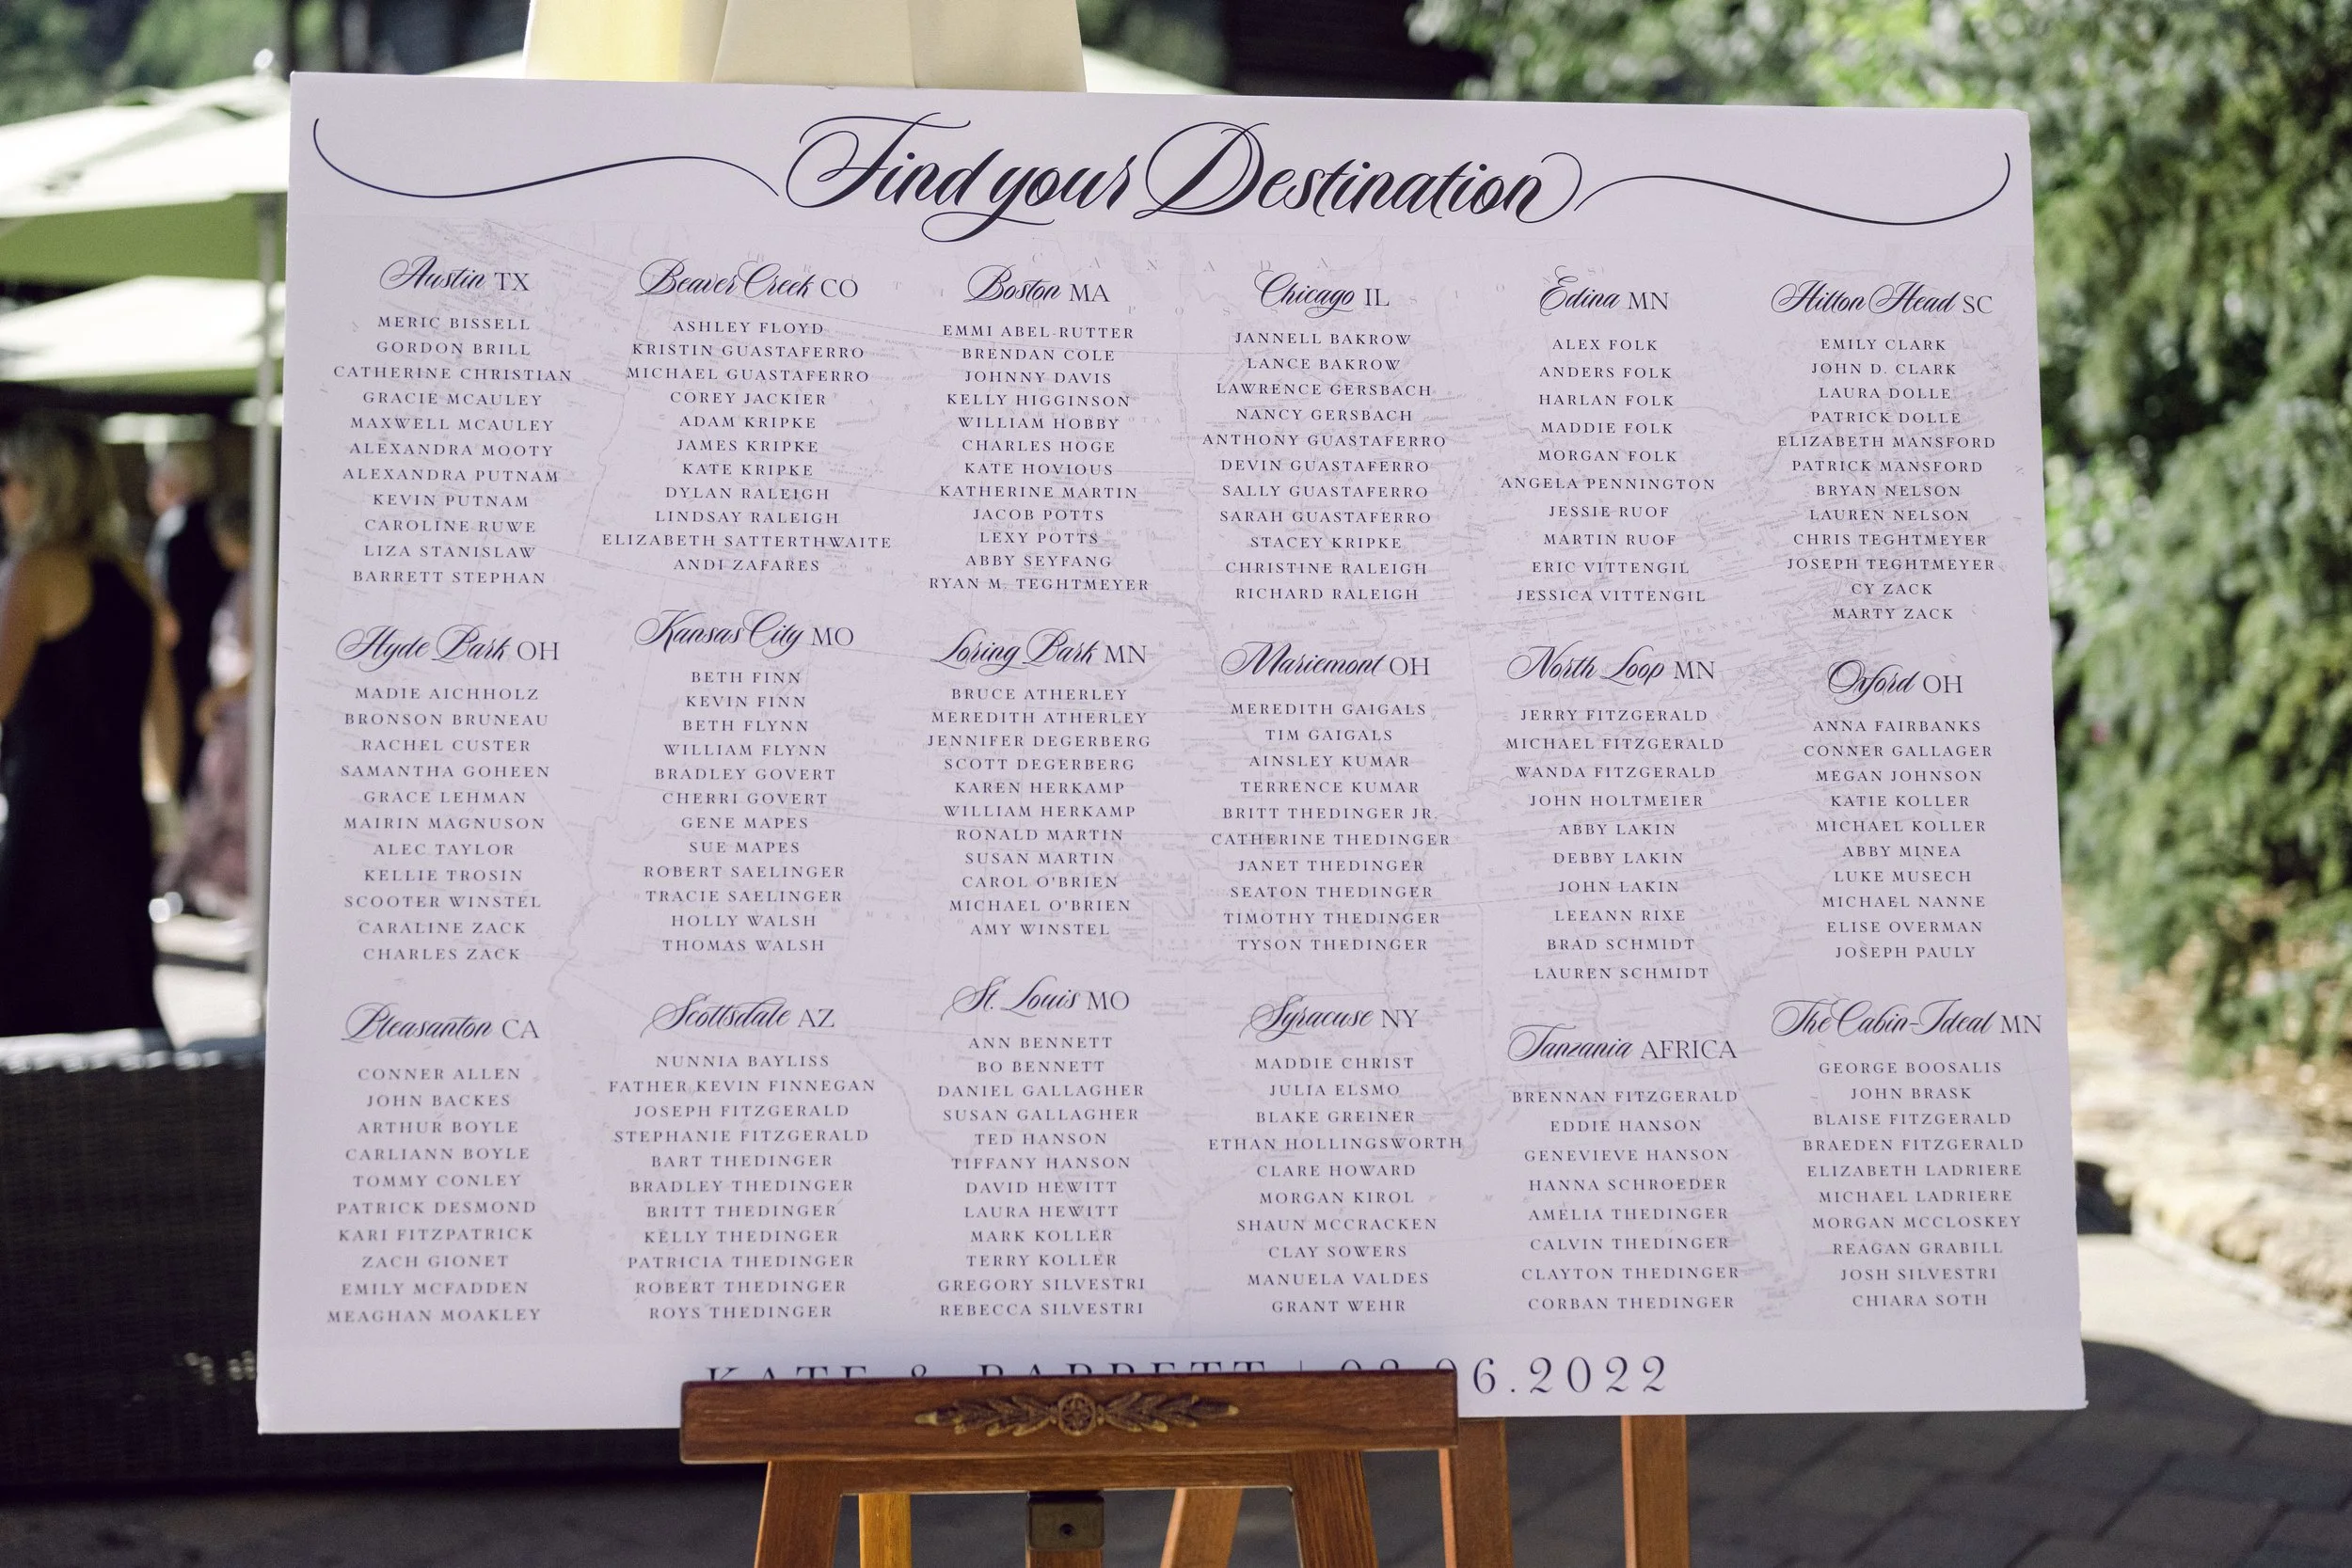 Find your Destination
Austin TX
MERIC BISSELL
GORDON BRILL
CATHERINE CHRISTIAN
GRACIE MCAULEY
MAXWELL MCAULEY
ALEXANDRA MOOTY
ALEXANDRA PUTNAM
KEVIN PUTNAM
CAROLINE RUWE
LIZA STANISLAW
BARRETT STEPHAN
Beaver Creek CO
ASHLEY FLOYD
KRISTIN GUASTAFERRO
MICHAEL GUASTAFERRO
COREY JACKIER
ADAM KRIPKE
JAMES KRIPKE
KATE KRIPKE
DYLAN RALEIGH
LINDSAY RALEIGH
ELIZABETH SATTERTHWAITE
ANDI ZAFARES
Boston MA
EMMI ABEL-RUTTER
BRENDAN COLE
JOHNNY DAVIS
KELLY HIGGINSON
WILLIAM HOBBY
CHARLES HOGE
KATE HOVIOUS
KATHERINE MARTIN
JACOB POTTS
LEXY POTTS
ABBY SEYFANG
RYAN M. TEGHTMEYER
Chicago IL
JANNELL BAKROW
LANCE BAKROW
LAWRENCE GERSBACH
NANCY GERSBACH
ANTHONY GUASTAFERRO
DEVIN GUASTAFERRO
SALLY GUASTAFERRO
SARAH GUASTAFERRO
STACEY KRIPKE
CHRISTINE RALEIGH
RICHARD RALEIGH
Edina MN
ALEX FOLK
ANDERS FOLK
HARLAN FOLK
MADDIE FOLK
MORGAN FOLK
ANGELA PENNINGTON
JESSIE RUOF
MARTIN RUOF
ERIC VITTENGIL
JESSICA VITTENGIL
Hilton Head SC
EMILY CLARK
JOHN D. CLARK
LAURA DOLLE
PATRICK DOLLE
ELIZABETH MANSFORD
PATRICK MANSFORD
BRYAN NELSON
LAUREN NELSON
CHRIS TEGHTMEYER
JOSEPH TEGHTMEYER
CY ZACK
MARTY ZACK
Hyde Park OH
MADIE AICHHOLZ
BRONSON BRUNEAU
RACHEL CUSTER
SAMANTHA GOHEEN
GRACE LEHMAN
MAIRIN MAGNUSON
ALEC TAYLOR
KELLIE TROSIN
SCOOTER WINSTEL
CARALINE ZACK
CHARLES ZACK
Kansas City MO
BETH FINN
KEVIN FINN
BETH FLYNN
WILLIAM FLYNN
BRADLEY GOVERT
CHERRI GOVERT
GENE MAPES
SUE MAPES
ROBERT SAELINGER
TRACIE SAELINGER
HOLLY WALSH
THOMAS WALSH
Loring Park MN
BRUCE ATHERLEY
MEREDITH ATHERLEY
JENNIFER DEGERBERG
SCOTT DEGERBERG
KAREN HERKAMP
WILLIAM HERKAMP
RONALD MARTIN
SUSAN MARTIN
CAROL O'BRIEN
MICHAEL O'BRIEN
AMY WINSTEL
Mariemont OH
MEREDITH GAIGALS
TIM GAIGALS
AINSLEY KUMAR
TERRENCE KUMAR
BRITT THEDINGER JR.
CATHERINE THEDINGER
JANET THEDINGER
SEATON THEDINGER
TIMOTHY THEDINGER
TYSON THEDINGER
North Loop MN
JERRY FITZGERALD
MICHAEL FITZGERALD
WANDA FITZGERALD
JOHN HOLTMEIER
ABBY LAKIN
DEBBY LAKIN
JOHN LAKIN
LEEANN RIXE
BRAD SCHMIDT
LAUREN SCHMIDT
Oxford OH
ANNA FAIRBANKS
CONNER GALLAGER
MEGAN JOHNSON
KATIE KOLLER
MICHAEL KOLLER
ABBY MINEA
LUKE MUSECH
MICHAEL NANNE
ELISE OVERMAN
JOSEPH PAULY
Pleasanton CA
CONNER ALLEN
JOHN BACKES
ARTHUR BOYLE
CARLIANN BOYLE
TOMMY CONLEY
PATRICK DESMOND
KARI FITZPATRICK
ZACH GIONET
EMILY MCFADDEN
MEAGHAN MOAKLEY
Scottsdale AZ
NUNNIA BAYLISS
FATHER KEVIN FINNEGAN
JOSEPH FITZGERALD
STEPHANIE FITZGERALD
BART THEDINGER
BRADLEY THEDINGER
BRITT THEDINGER
KELLY THEDINGER
PATRICIA THEDINGER
ROBERT THEDINGER
ROYS THEDINGER
St. Louis MO
ANN BENNETT
BO BENNETT
DANIEL GALLAGHER
SUSAN GALLAGHER
TED HANSON
TIFFANY HANSON
DAVID HEWITT
LAURA HEWITT
MARK KOLLER
TERRY KOLLER
GREGORY SILVESTRI
REBECCA SILVESTRI
Syracuse NY
MADDIE CHRIST
JULIA ELSMO
BLAKE GREINER
ETHAN HOLLINGSWORTH
CLARE HOWARD
MORGAN KIROL
SHAUN MCCRACKEN
CLAY SOWERS
MANUELA VALDES
GRANT WEHR
Tanzania AFRICA
BRENNAN FITZGERALD
EDDIE HANSON
GENEVIEVE HANSON
HANNA SCHROEDER
AMELIA THEDINGER
CALVIN THEDINGER
CLAYTON THEDINGER
CORBAN THEDINGER
The Cabin-Ideal MN
GEORGE BOOSALIS
JOHN BRASK
BLAISE FITZGERALD
BRAEDEN FITZGERALD
ELIZABETH LADRIERE
MICHAEL LADRIERE
MORGAN MCCLOSKEY
REAGAN GRABILL
JOSH SILVESTRI
CHIARA SOTH
KATE & BARRETT | 6.2022